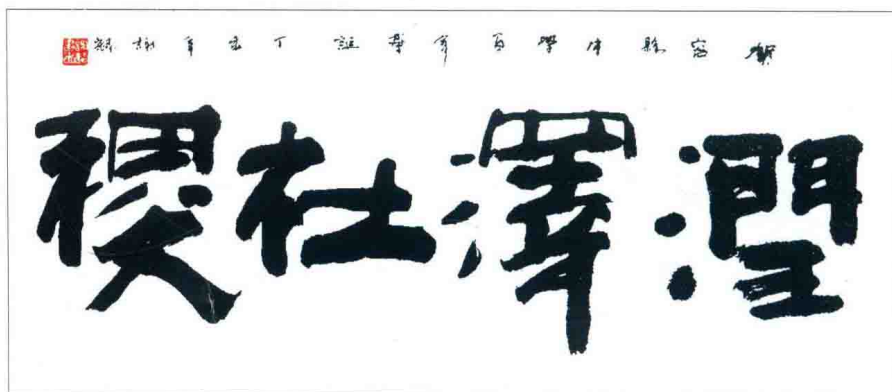 賀縣中學百年華誕丁亥年
潤澤社稷